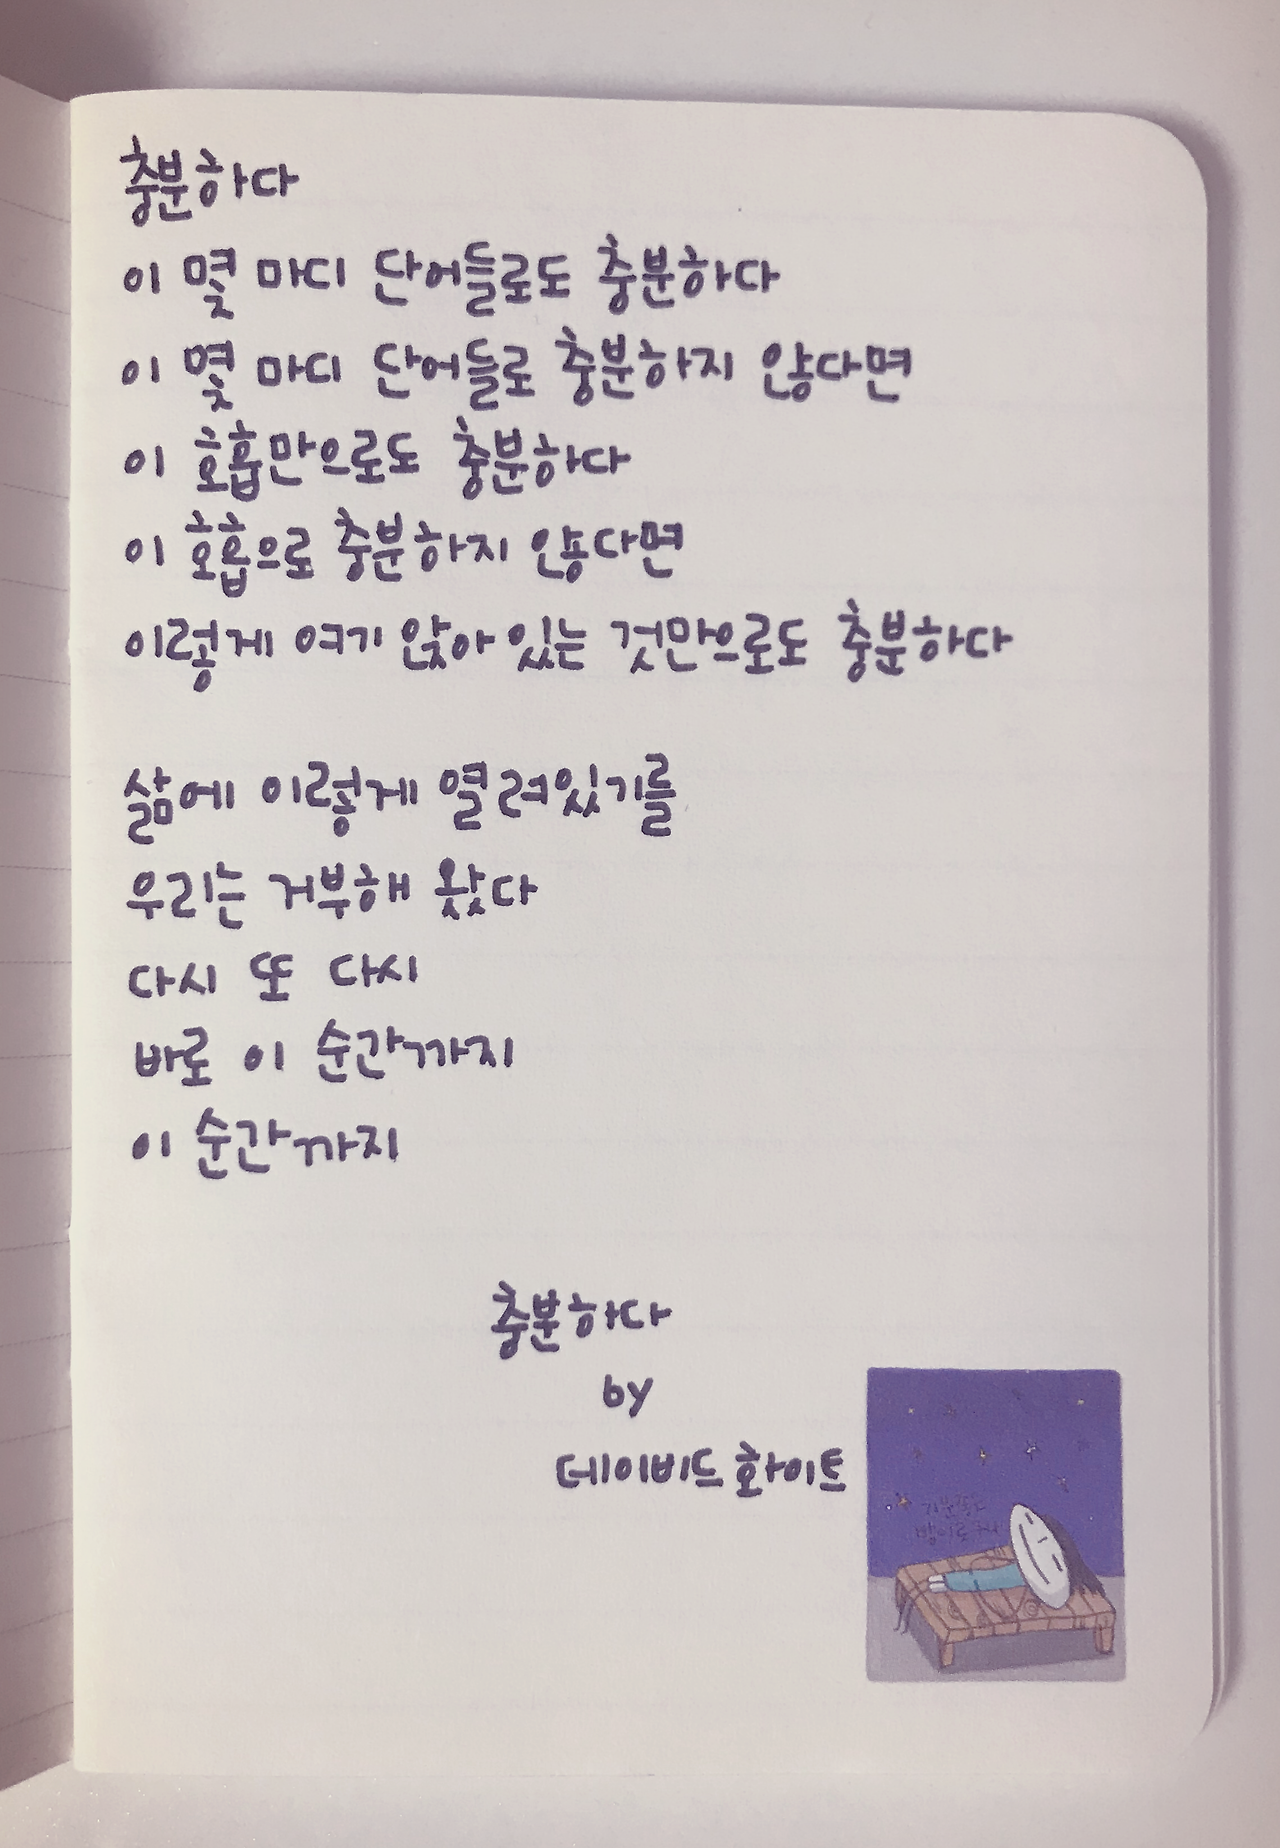 충분하다
이 몇 마디 단어들로도 충분하다
이 몇 마디 단어들로 충분하지 않다면
이 호흡만으로도 충분하다
이 호흡으로 충분하지 않다면
이렇게 여기 앉아 있는 것만으로도 충분하다
삶에 이렇게 열려있기를
우리는 거부해 왔다
다시 또 다시
바로 이 순간까지
이 순간까지
충분하다
by
데이비드 화이트